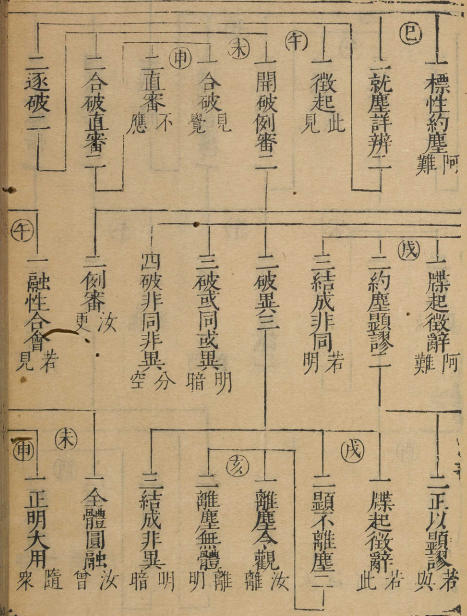 巳
一標性約塵 阿難
二就塵詳辨二
午
一徵起 此見
一開破例審二
未
一合破 見覺
申
二直審 不應
二合破直審二
二逐破二
一牒起徵辭 阿難
戌
二約塵顯謬二
三結成非同 若明
二破異三
三破或同或異 明暗
四破非同非異 分空
二例審 汝更
一融性合會 若見
午
二正以顯謬 若與
一牒起徵辭 若此
戌
二顯不離塵二
一離塵令觀 汝離
亥
二離塵無體 離明
三結成非異 明暗
一全體圓融 汝曾
未
一正明大用 隨衆
申